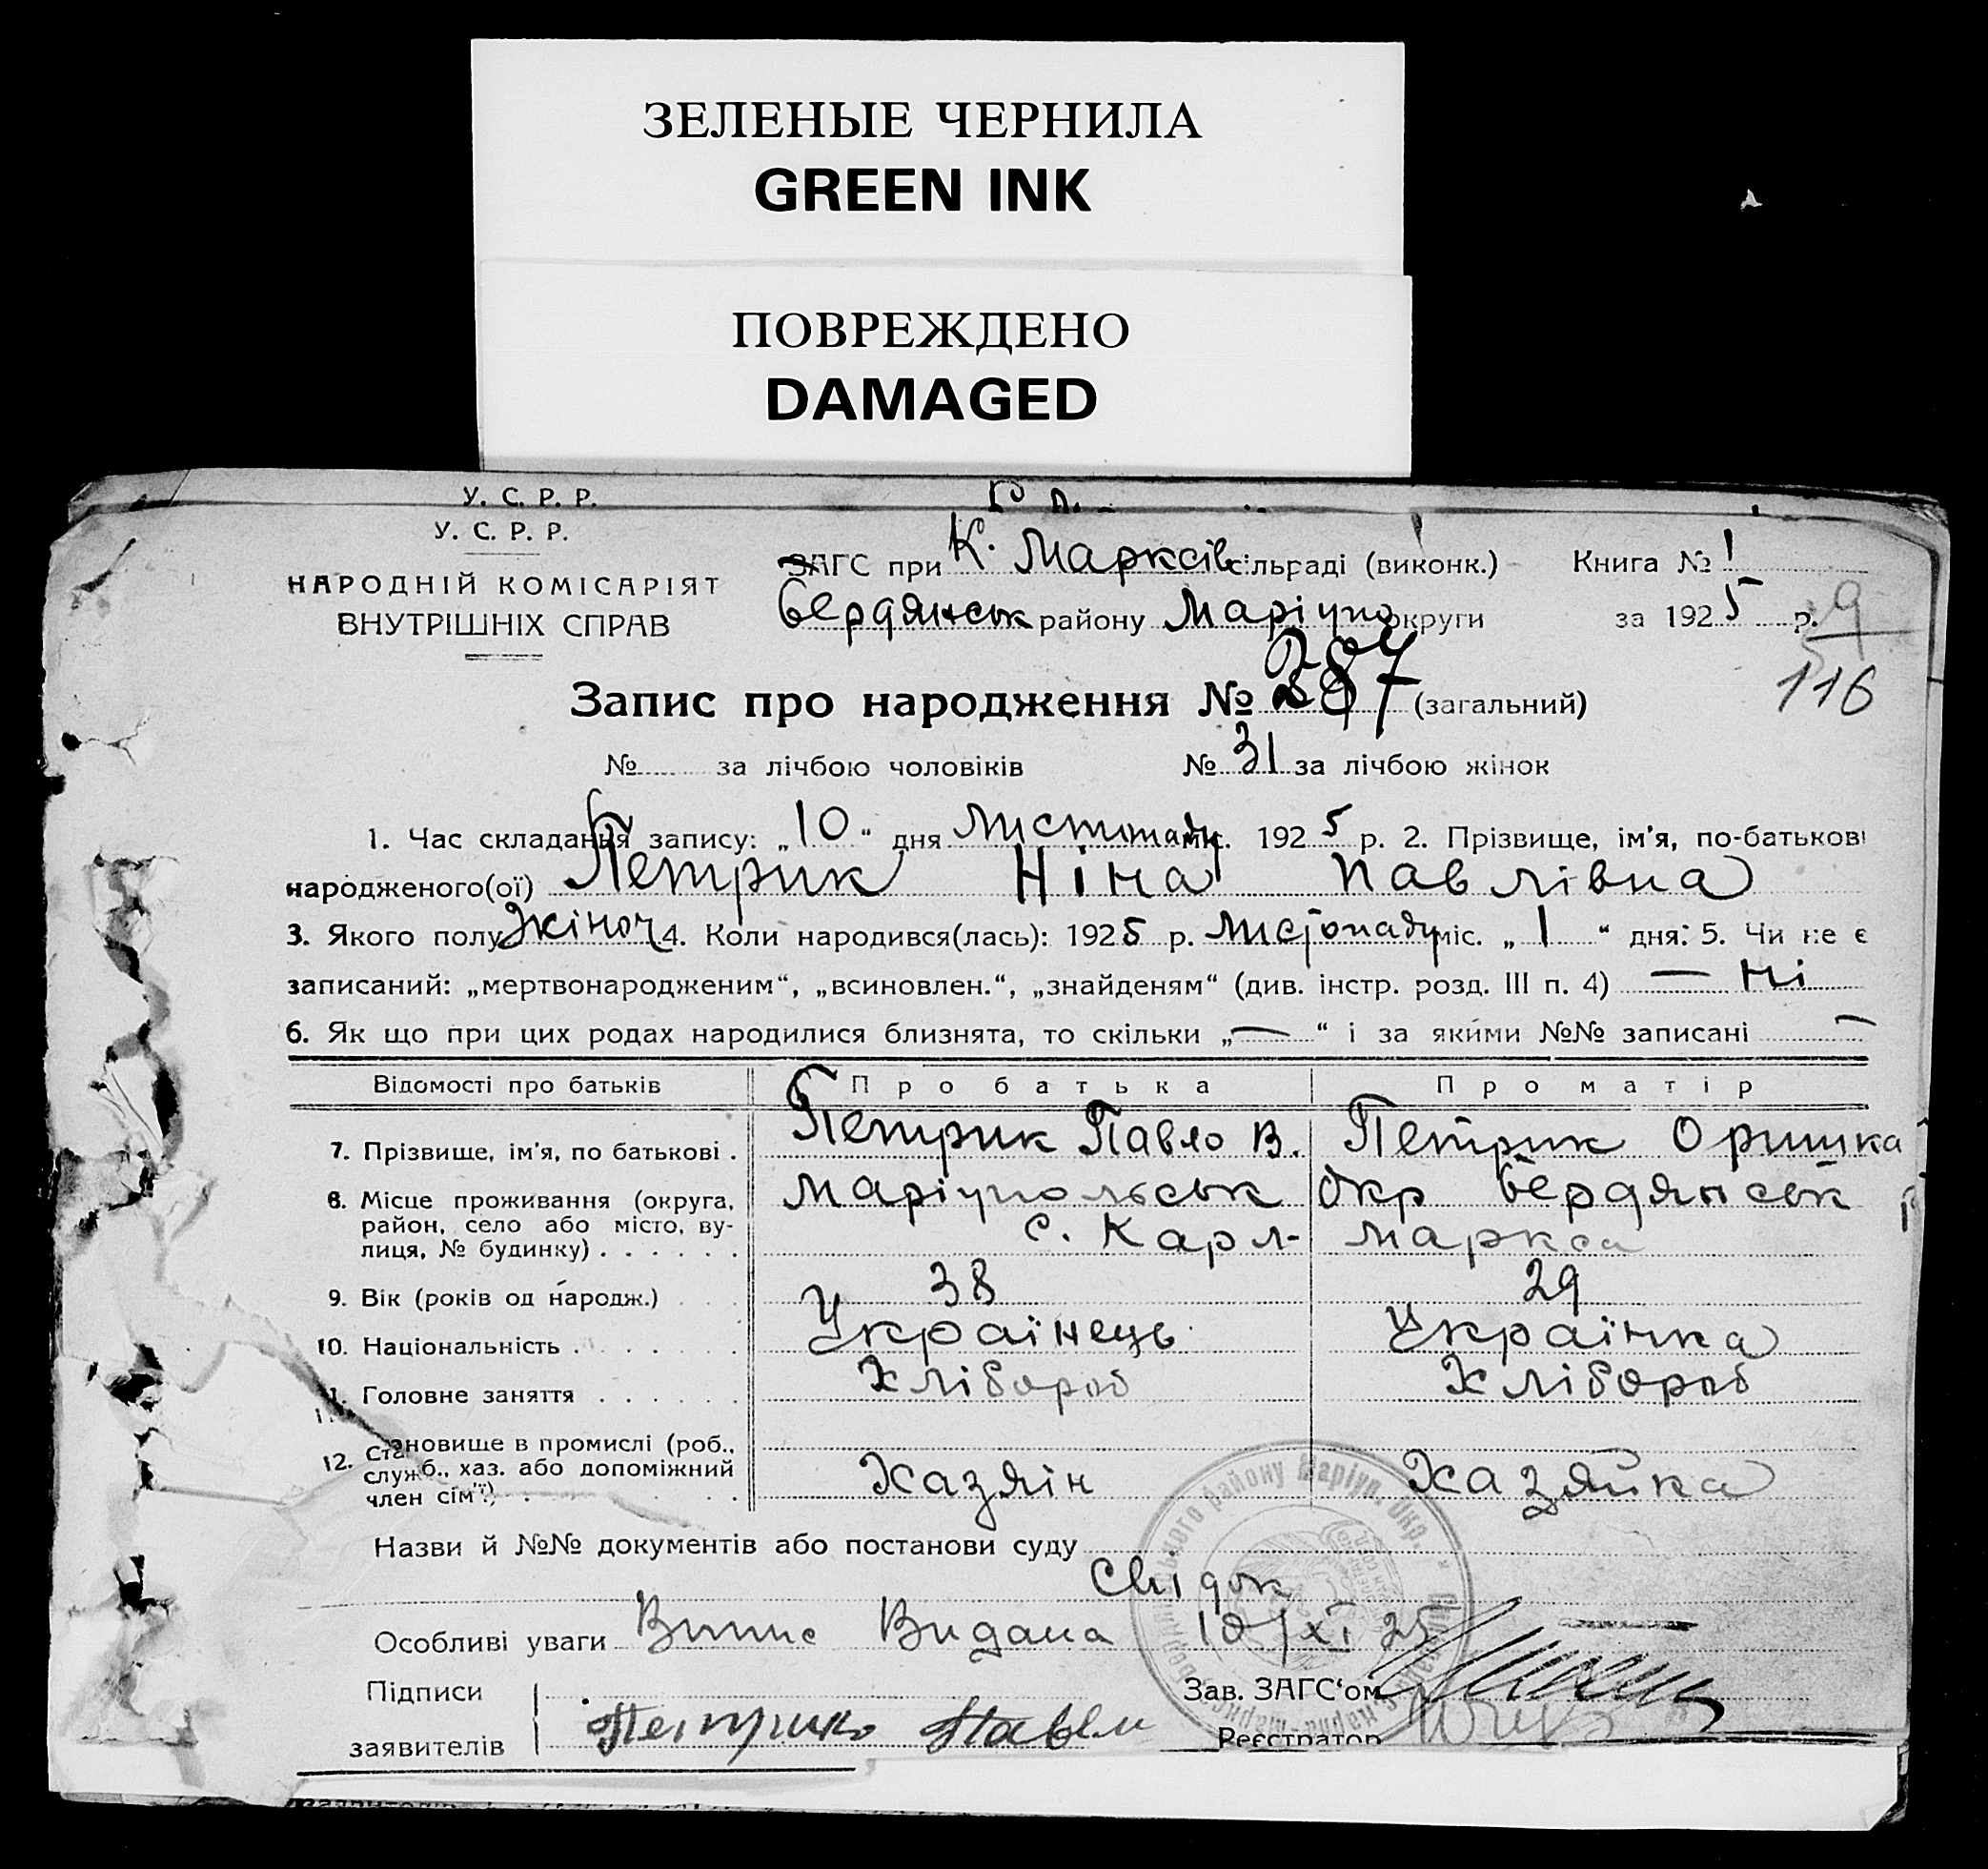 ЗЕЛЕНЫЕ ЧЕРНИЛА
GREEN INK
ПОВРЕЖДЕНО
DAMAGED
У. С. Р. Р.
У. С. Р. Р.
НАРОДНІЙ КОМІСАРІЯТ
ВНУТРІШНІХ СПРАВ
ЗАГС при К. Марксів сільраді (виконк.) Книга № 1
Бердянськ району Маріупо округи за 1925 р.
9
116
Запис про народження № 287 (загальний)
№ за лічбою чоловіків № 31 за лічбою жінок
1. Час складання запису: „10“ дня Листопаду міс. 1925 р. 2. Прізвище, ім'я, по-батькові
народженого(ої) Петрик Ніна Павлівна
3. Якого полу жіноч 4. Коли народився(лась): 1925 р. Листопаду міс. „1“ дня: 5. Чи не є
записаний: „мертвонародженим“, „всиновлен.“, „знайденям“ (див. інстр. розд. III п. 4) — Ні
6. Як що при цих родах народилися близнята, то скільки „—“ і за якими №№ записані —
Відомості про батьків Про батька Про матір
7. Прізвище, ім'я, по батькові . Петрик Павло В. Петрик Оришка
8. Місце проживання (округа, Маріупольськ Окр Бердянськ
район, село або місто, ву- с. Карл- Маркса
лиця, № будинку) . . . . . .
9. Вік (років од народж.) . . . 38 29
10. Національність . . . . . . . Українець Українка
11. Головне заняття . . . . . . Хлібороб Хлібороб
12. Становище в промислі (роб.,
служб., хаз. або допоміжний Хазяін Хазяйка
член сім'ї) . . . . . .
Назви й №№ документів або постанови суду
Свідок
Особливі уваги Випис Видана 10/XI 25
Підписи Зав. ЗАГС‘ом
заявителів Петрик Реєстратор
району Маріуп. Окр.